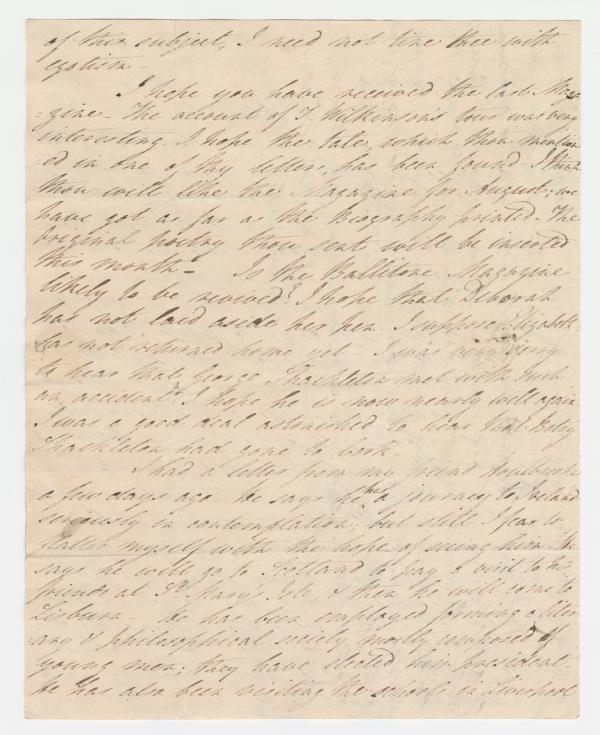 of this subject, I need not tire thee with
egotism -
I hope you have received the last Maga
=zine - The account of T. Wilkinson's tour was very
interesting. I hope the tale, which thou mention
=ed in one of thy letters, has been found - I think
thou will like the Magazine for August; we
have got as far as the Biography printed. The
original poetry thou sent will be inserted
this month - Is the Ballitore Magazine
likely to be revived? I hope that Deborah
has not laid aside her pen. I suppose Elizabeth
has not returned home yet - I was very sorry
to hear that George Shackleton met with such
an accident. I hope he is now nearly well again
I was a good deal astonished to hear that Betsy
Shackleton had gone to
I had a letter from my friend
a few days ago he says he has a journey to Ireland
seriously in contemplation; but still I fear to
flatter myself with the hope of seeing him. He
says he will go to Scotland to pay a visit to his
friends at St. Mary's Isle & then he will come to
Lisburn - he has been employed forming a liter
=ary & philosophical society mostly composed of
young men; they have elected him president -
he has also been visiting the schools in Liverpool